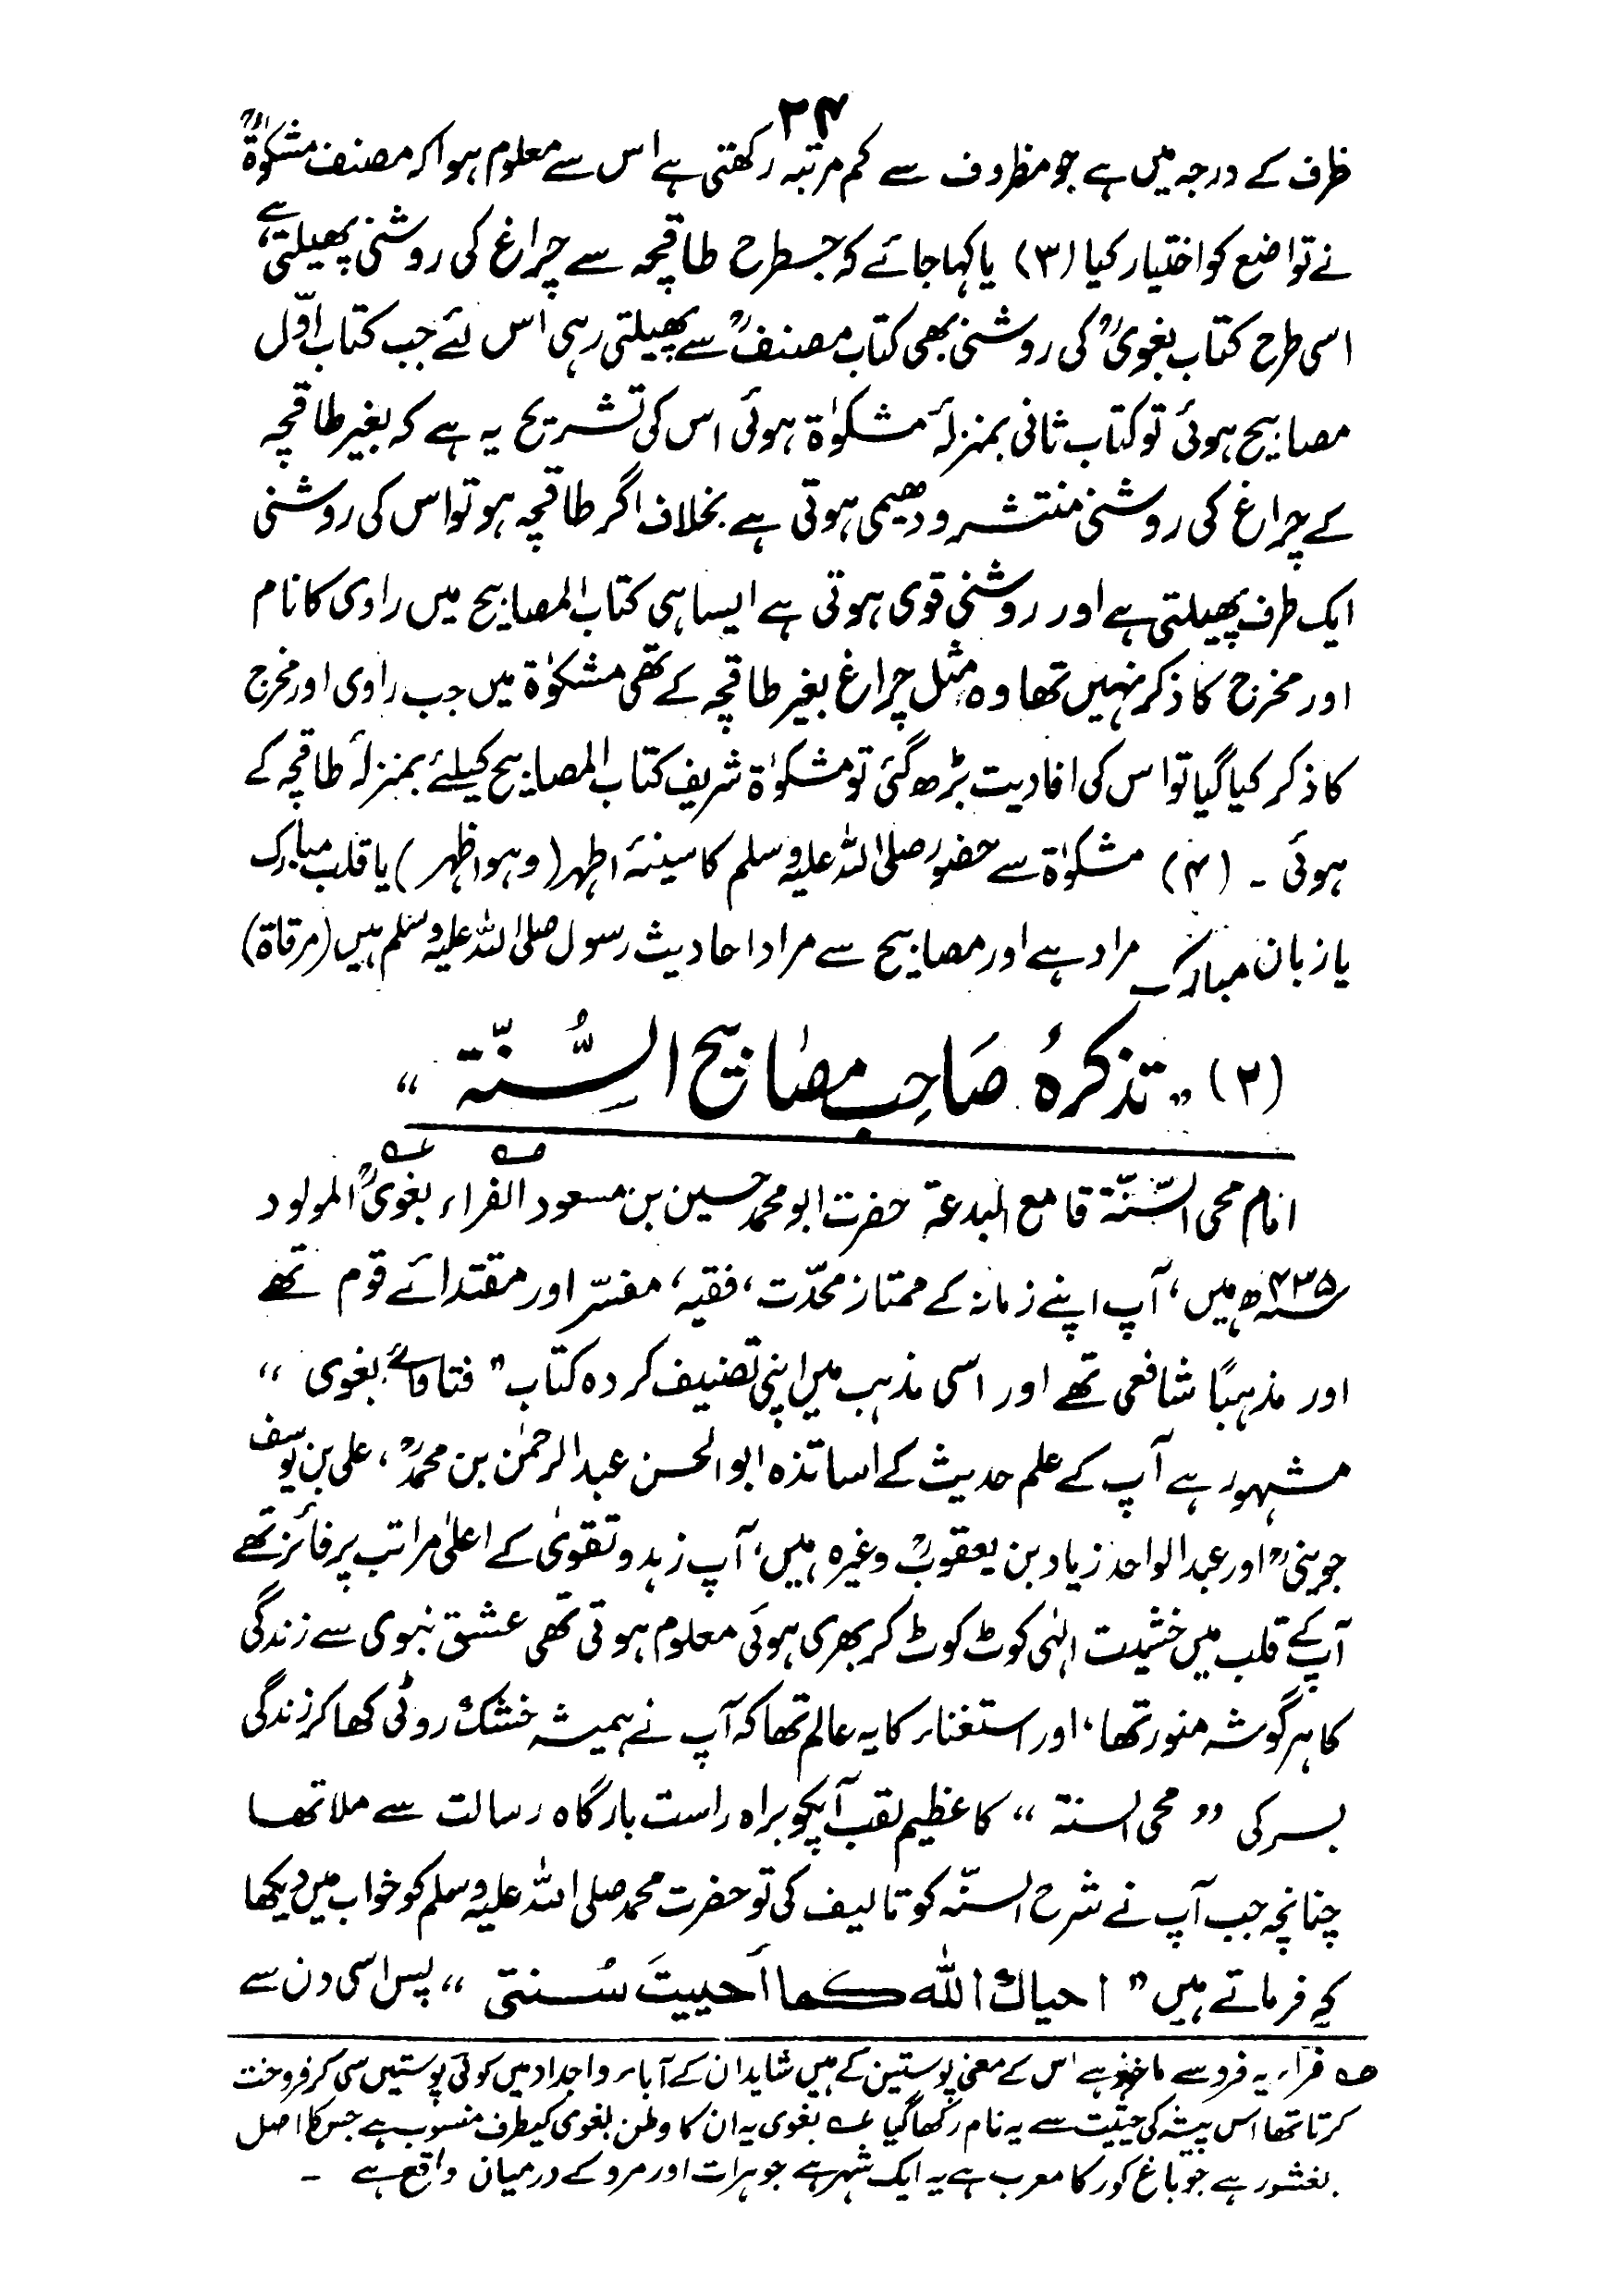 ۲۴
ظرف کے درجہ میں ہے جو مظروف سے کم مرتبہ رکھتی ہے اس سے معلوم ہوا کہ مصنف مشکوٰۃؒ
نے تواضع کو اختیار کیا (۳) یا کہا جائے کہ جسطرح طاقچہ سے چراغ کی روشنی پھیلتی ہے
اسی طرح کتاب بغویؒ کی روشنی بھی کتاب مصنفؒ سے پھیلتی رہی اس لئے جب کتاب اوّل
مصابیح ہوئی تو کتاب ثانی بمنزلۂ مشکوٰۃ ہوئی اس کی تشریح یہ ہے کہ بغیر طاقچہ
کے چراغ کی روشنی منتشر و دھیمی ہوتی ہے بخلاف اگر طاقچہ ہو تو اس کی روشنی
ایک طرف پھیلتی ہے اور روشنی قوی ہوتی ہے ایسا ہی کتاب المصابیح میں راوی کا نام
اور مخرج کا ذکر نہیں تھا وہ مثل چراغ بغیر طاقچہ کے تھی مشکوٰۃ میں جب راوی اور مخرج
کا ذکر کیا گیا تو اس کی افادیت بڑھ گئی تو مشکوٰۃ شریف کتاب المصابیح کیلئے بمنزلۂ طاقچہ کے
ہوئی ۔ (۴) مشکوٰۃ سے حضور صلی اللہ علیہ وسلم کا سینۂ اطہر (وہو اظہر) یا قلب مبارک
یا زبان مبارک مراد ہے اور مصابیح سے مراد احادیث رسول صلی اللہ علیہ وسلم ہیں (مرقاۃ)
(۲) „ تذکرۂ صَاحِب مصَابیح السُّنّۃ “
امام محی السنّۃ قامع البدعۃ حضرت ابو محمد حسین بن مسعود الفراء صہ بغویؒ عہ المولود
۴۳۵ھ میں، آپ اپنے زمانہ کے ممتاز محدّث، فقیہ، مفسّر اور مقتدائے قوم تھے
اور مذہبًا شافعی تھے اور اسی مذہب میں اپنی تصنیف کردہ کتاب ” فتاوائے بغوی “
مشہور ہے آپ کے علم حدیث کے اساتذہ ابو الحسن عبد الرحمٰن بن محمدؒ، علی بن یوسف
جوینیؒ اور عبد الواحد زیاد بن یعقوبؒ وغیرہ ہیں، آپ زہد و تقویٰ کے اعلیٰ مراتب پر فائز تھے
آپکے قلب میں خشیت الٰہی کوٹ کوٹ کر بھری ہوئی معلوم ہوتی تھی عشق نبوی سے زندگی
کا ہر گوشہ منور تھا، اور استغناء کا یہ عالم تھا کہ آپ نے ہمیشہ خشک روٹی کھا کر زندگی
بسر کی ” محی السنۃ “ کا عظیم لقب آپکو براہ راست بارگاہ رسالت سے ملا تھا
چنانچہ جب آپ نے شرح السنّہ کو تالیف کی تو حضرت محمد صلی اللہ علیہ وسلم کو خواب میں دیکھا
کہ فرماتے ہیں ” احیاك اللّٰه كما اَحییتَ سُنتی “ پس اسی دن سے
صہ فراء یہ فرو سے ماخوذ ہے اس کے معنی پوستین کے ہیں شاید ان کے آباء و اجداد میں کوئی پوستیں سی کر فروخت
کرتا تھا اس پیشہ کی حیثیت سے یہ نام رکھا گیا عہ بغوی یہ ان کا وطن بغوی کیطرف منسوب ہے جس کا اصل
بغشور ہے جو باغ کور کا معرب ہے یہ ایک شہر ہے جو ہرات اور مرو کے درمیان واقع ہے ۔